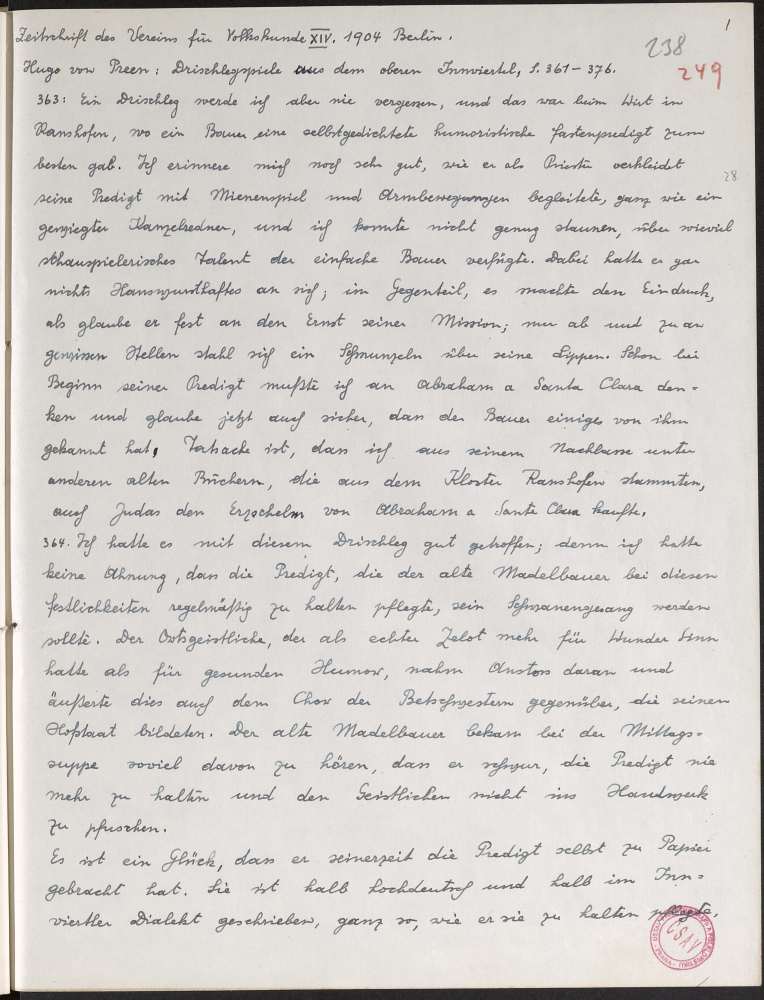 1
Zeitschrift des Vereins für Volkskunde XIV. 1904 Berlin.
238
Hugo von Preen: Drischlegspiele aus dem oberen Innviertel, S. 361-376.
249
363: Ein Drischleg werde ich aber nie vergessen, und das war beim Wirt in
Ranshofen, wo ein Bauer eine selbstgedichtete humoristische Fastenpredigt zum
besten gab. Ich erinnere mich noch sehr gut, wie er als Priester verkleidet
28
seine Predigt mit Mienenspiel und Armbewegungen begleitete, ganz wie ein
gewiegter Kanzelredner, und ich konnte nicht genug staunen, über wieviel
schauspielerisches Talent der einfache Bauer verfügte. Dabei hatte er gar
nichts Hanswursthaftes an sich; im Gegenteil, es machte den Eindruck,
als glaube er fest an den Ernst seiner Mission; nur ab und zu an
gewissen Stellen stahl sich ein Schmunzeln über seine Lippen. Schon bei
Beginn seiner Predigt mußte ich an Abraham a Santa Clara den=
ken und glaube jetzt auch sicher, dass der Bauer einiges von ihm
gekannt hat, Tatsache ist, dass ich aus seinem Nachlasse unter
anderen alten Büchern, die aus dem Kloster Ranshofen stammten,
auch Judas den Erzschelm von Abraham a Santa Clara kaufte.
364. Ich hatte es mit diesem Drischleg gut getroffen; denn ich hatte
keine Ahnung, dass die Predigt, die der alte Madelbauer bei diesen
Festlichkeiten regelmäßig zu halten pflegte, sein Schwanengesang werden
sollte. Der Ortsgeistliche, der als echter Zelot mehr für Wunder Sinn
hatte als für gesunden Humor, nahm Anstoss daran und
äußerte dies auch dem Chor der Betschwestern gegenüber, die seinen
Hofstaat bildeten. Der alte Madelbauer bekam bei der Mittags=
suppe soviel davon zu hören, dass er schwur, die Predigt nie
mehr zu halten und den Geistlichen nicht ins Handwerk
zu pfuschen.
Es ist ein Glück, dass er seinerzeit die Predigt selbst zu Papier
gebracht hat. Sie ist halb hochdeutsch und halb im Inn=
viertler Dialekt geschrieben, ganz so, wie er sie zu halten pflegte.
ČSAV